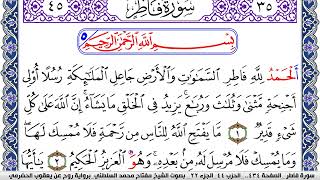 ٤٥ سورة فاطر ٣٥
بسم الله الرحمن الرحيم
الحمد لله فاطر السموات والأرض جاعل الملئكة رسلا أولى
أجنحة مثنى وثلث وربع يزيد في الخلق ما يشاء إن الله على كل
شيء قدير ١ ما يفتح الله للناس من رحمة فلا ممسك لها
وما يمسك فلا مرسل له من بعده وهو العزيز الحكيم ٢ يأيها
سورة فاطر - الصفحة ٤٣٤ - الحزب ٤٤ - الجزء ٢٢ - بصوت الشيخ مفتاح محمد السلطني - برواية روح عن يعقوب الحضرمي